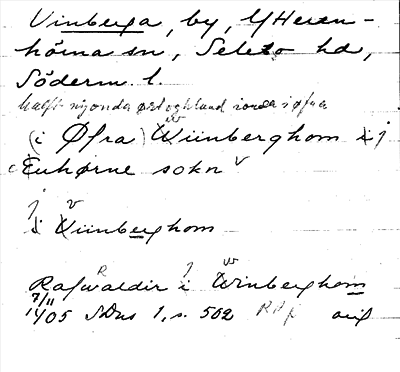 Vinberga, by, Ytteren-
hörna sn, Selebo hd,
Söderm. l.
halft niyonda ørtoghland iordh i øfra
(i Øfra) Wiinberghom i j
Enhørne sokn v
j v
i Viinberghom
R j w
Rafwaldir i Winberghom
7/11
1405 SDns 1, s. 502 RPf avs